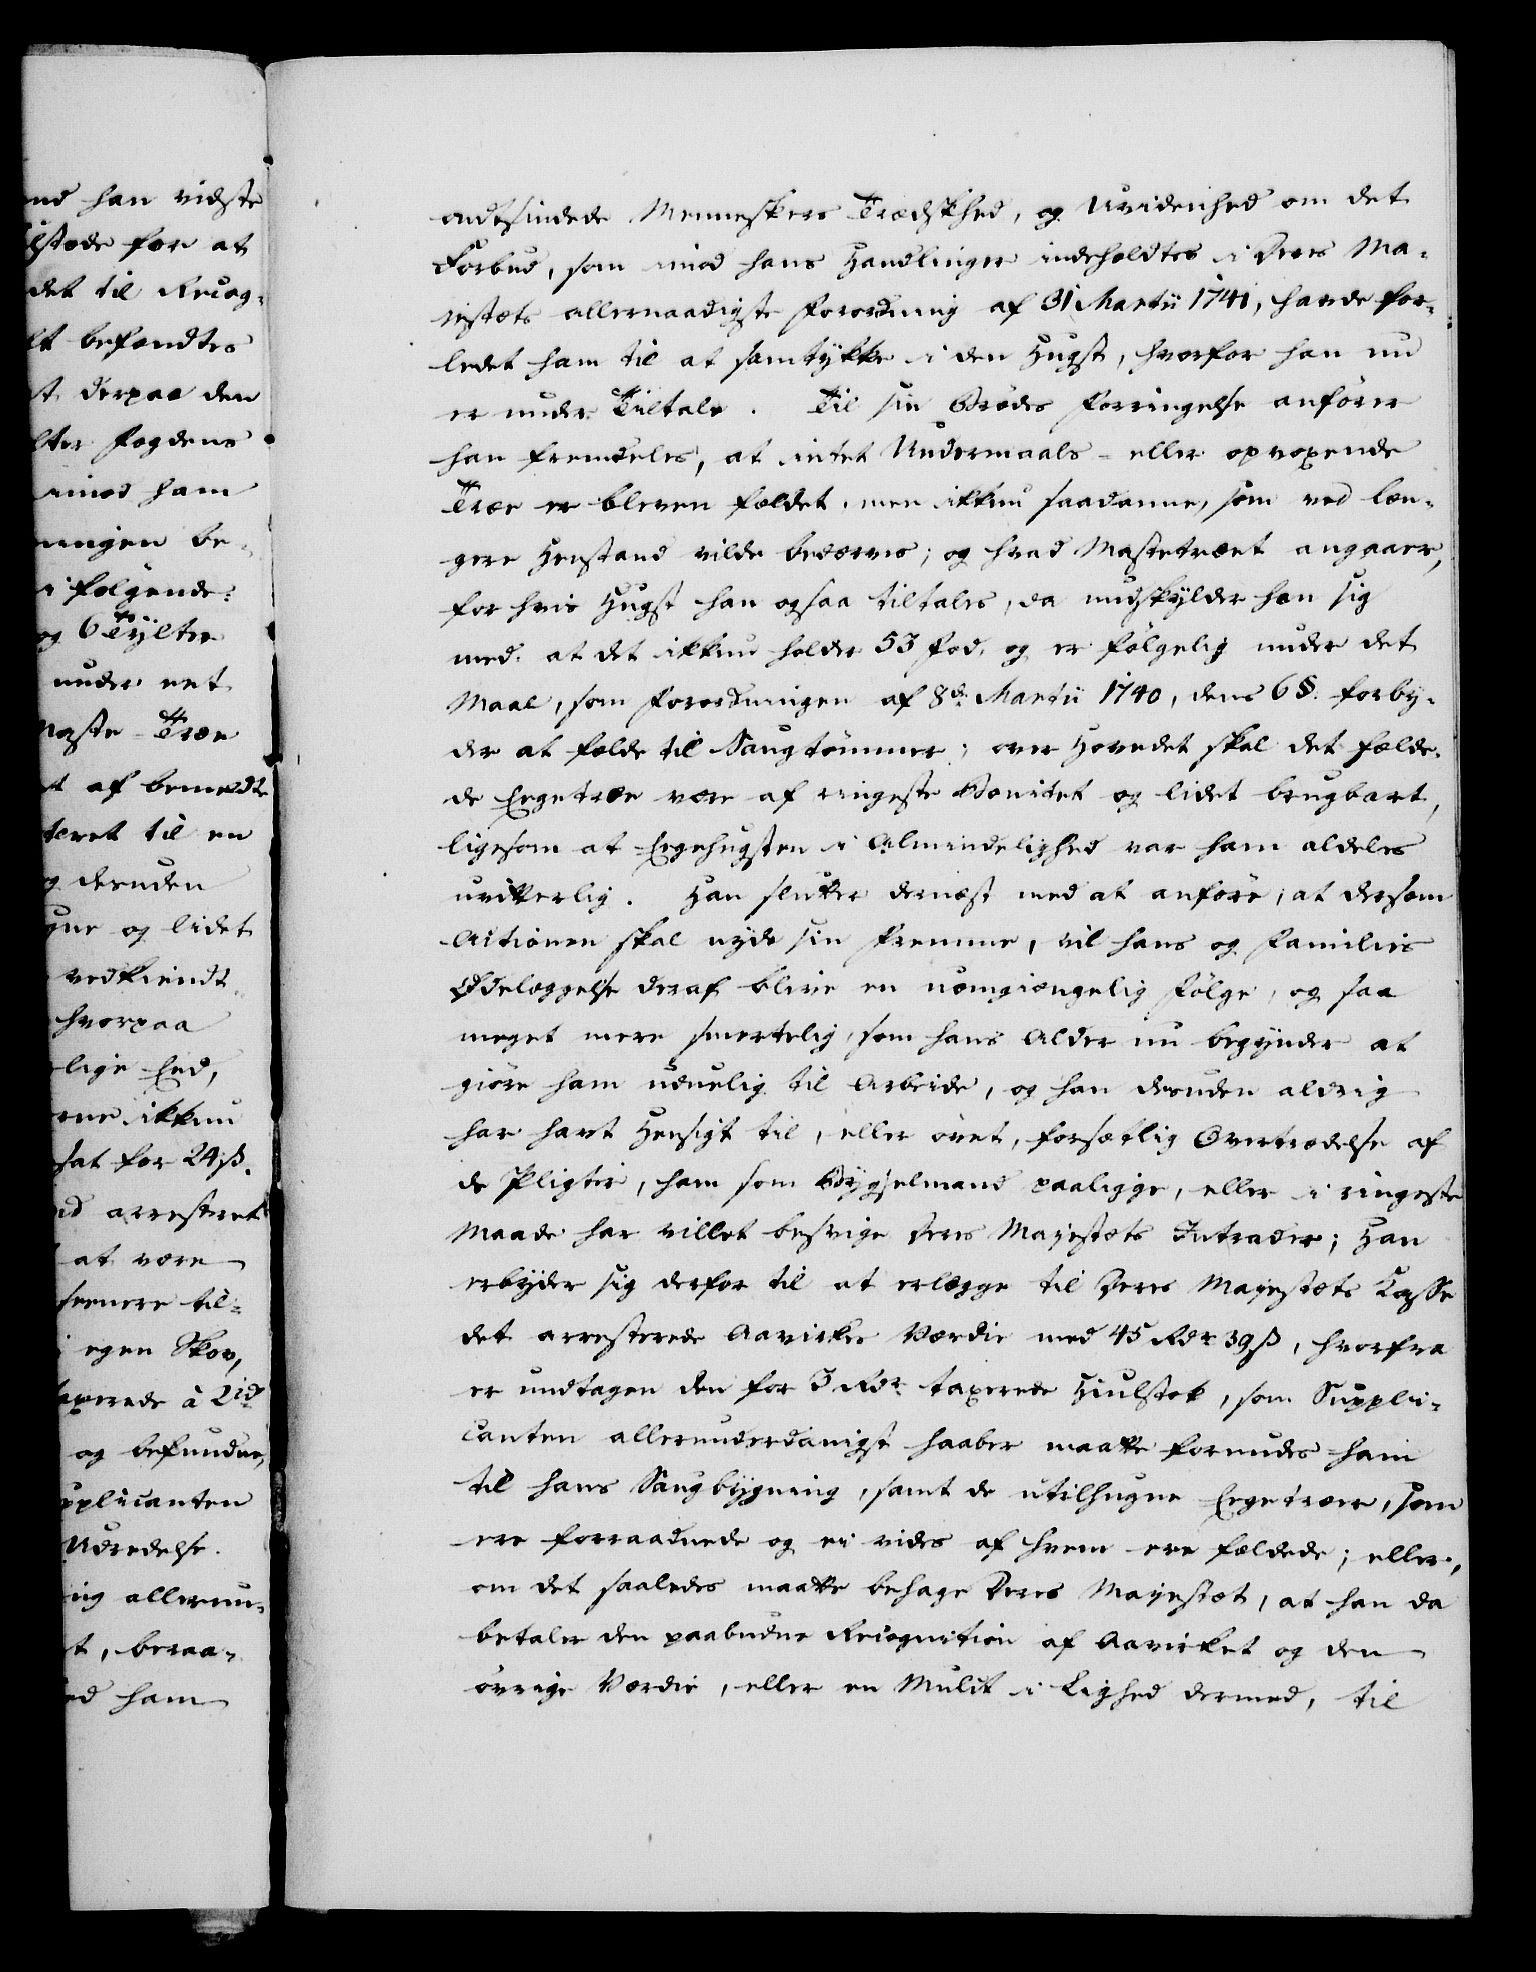 and han vidste
ilstede for at
det til Recog-
lt befandtes
st derpaa den
lter Fogdens
imod ham
ningen be-
i følgende:
og 6 Tÿlter
under eet
Maste-Træe
t af bemeldte
teret til en
g desuden
gne og lidet
vedkiendt
hvorpaa
lige Eed,
rne ikkun
sat for 24 ß.
id arresteret
at være
seenere til-
i egen Skov,
axerede à 2 id
og befundne,
upplicanten
Udredelse.
ig allerun-
t, beraa-
ed ham
ondtsindede Menneskers Trædskhed, og Uvidenhed om det
Forbud, som imod hans Handlinger indeholdtes i Deres Ma-
jestæts allernaadigste Forordning af 31 Martii 1741, havde for-
ledet ham til at samtykke i den Hugst, hvorfor han nu
er under Tiltale. Til sin Brødes Forringelse anfører
han fremdeles, at intet Undermaals- eller opvoxende
Træe er bleven fældet, men ikkun saadanne, som ved læn-
gere Henstand vilde bedærves; og hvad Mastetræet angaaer,
for hvis Hugst han ogsaa tiltales, da undskylder han sig
med, at det ikkun holder 53 Fod, og er følgelig under det
Maal, som Forordningen af 8de Martii 1740, dens 6 §. forby-
der at fælde til Saugtømmer; over Hovedet skal det fælde-
de Eegetræe være af ringeste Bonitet og lidet brugbart,
ligesom at Eegehugsten i Almindelighed var ham aldeles
uvitterlig. Han slutter dernæst med at anføre, at dersom
Actionen skal nyde sin Fremme, vil hans og Families
Ødelæggelse deraf blive en uomgiængelig Følge, og saa
meget mere smertelig, som hans Alder nu begynder at
giøre ham uduelig til Arbeide, og han desuden aldrig
har havt Hensigt til, eller øvet, forsætlig Overtrædelse af
de Pligter, ham som Bygselmand paaligge, eller i ringeste
Maade har villet besvige Deres Majestæts Intrader; Han
erbyder sig derfor til at erlægge til Deres Majestæts Casse
det arresterede Aavirkes Værdie med 45 Rdr 39 ß, hvorfra
er undtagen den for 3 Rdr taxerede Hiulstok, som Suppli-
canten allerunderdanigst haaber maatte forundes ham
til hans Saugbygning, samt de utilhugne Eegetræer, som
ere forraadnede og ei vides af hvem ere fældede; eller,
om det saaledes maatte behage Deres Majestæt, at han da
betaler den paabudne Recognition af Aavirket og den
øvrige Værdie, eller en Mulct i Lighed dermed, til